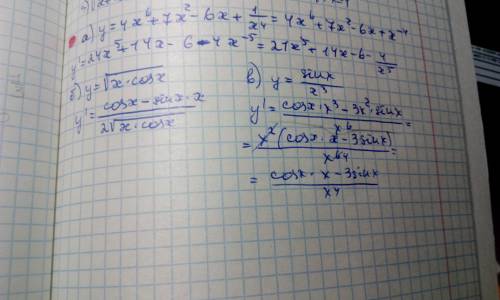 a) y = 4x⁶ + 7x² - 6x + 1/x⁴ = 4x⁶ + 7x² - 6x + x⁻⁴
y' = 24x⁵ + 14x - 6 - 4x⁻⁵ = 24x⁵ + 14x - 6 - 4/x⁵
б) y = √(x·cosx)
y' = (cosx - sinx·x)/(2√(x·cosx))
в) y = sinx/x³
y' = (cosx·x³ - 3x²·sinx)/x⁶ =
= x²(cosx·x - 3sinx)/x⁶ ⁴ =
= (cosx·x - 3sinx)/x⁴